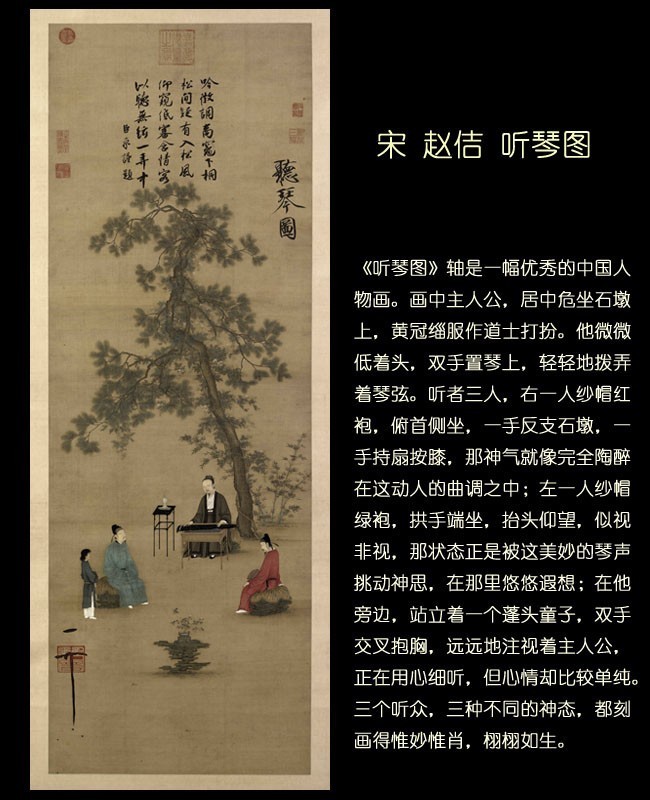 吟徵調商竈下桐
松間疑有入松風
仰窺低審含情客
以聽無絃一弄中
臣京謹題
聽琴圖
宋 赵佶 听琴图
《听琴图》轴是一幅优秀的中国人
物画。画中主人公，居中危坐石墩
上，黄冠缁服作道士打扮。他微微
低着头，双手置琴上，轻轻地拨弄
着琴弦。听者三人，右一人纱帽红
袍，俯首侧坐，一手反支石墩，一
手持扇按膝，那神气就像完全陶醉
在这动人的曲调之中；左一人纱帽
绿袍，拱手端坐，抬头仰望，似视
非视，那状态正是被这美妙的琴声
挑动神思，在那里悠悠遐想；在他
旁边，站立着一个蓬头童子，双手
交叉抱胸，远远地注视着主人公，
正在用心细听，但心情却比较单纯。
三个听众，三种不同的神态，都刻
画得惟妙惟肖，栩栩如生。